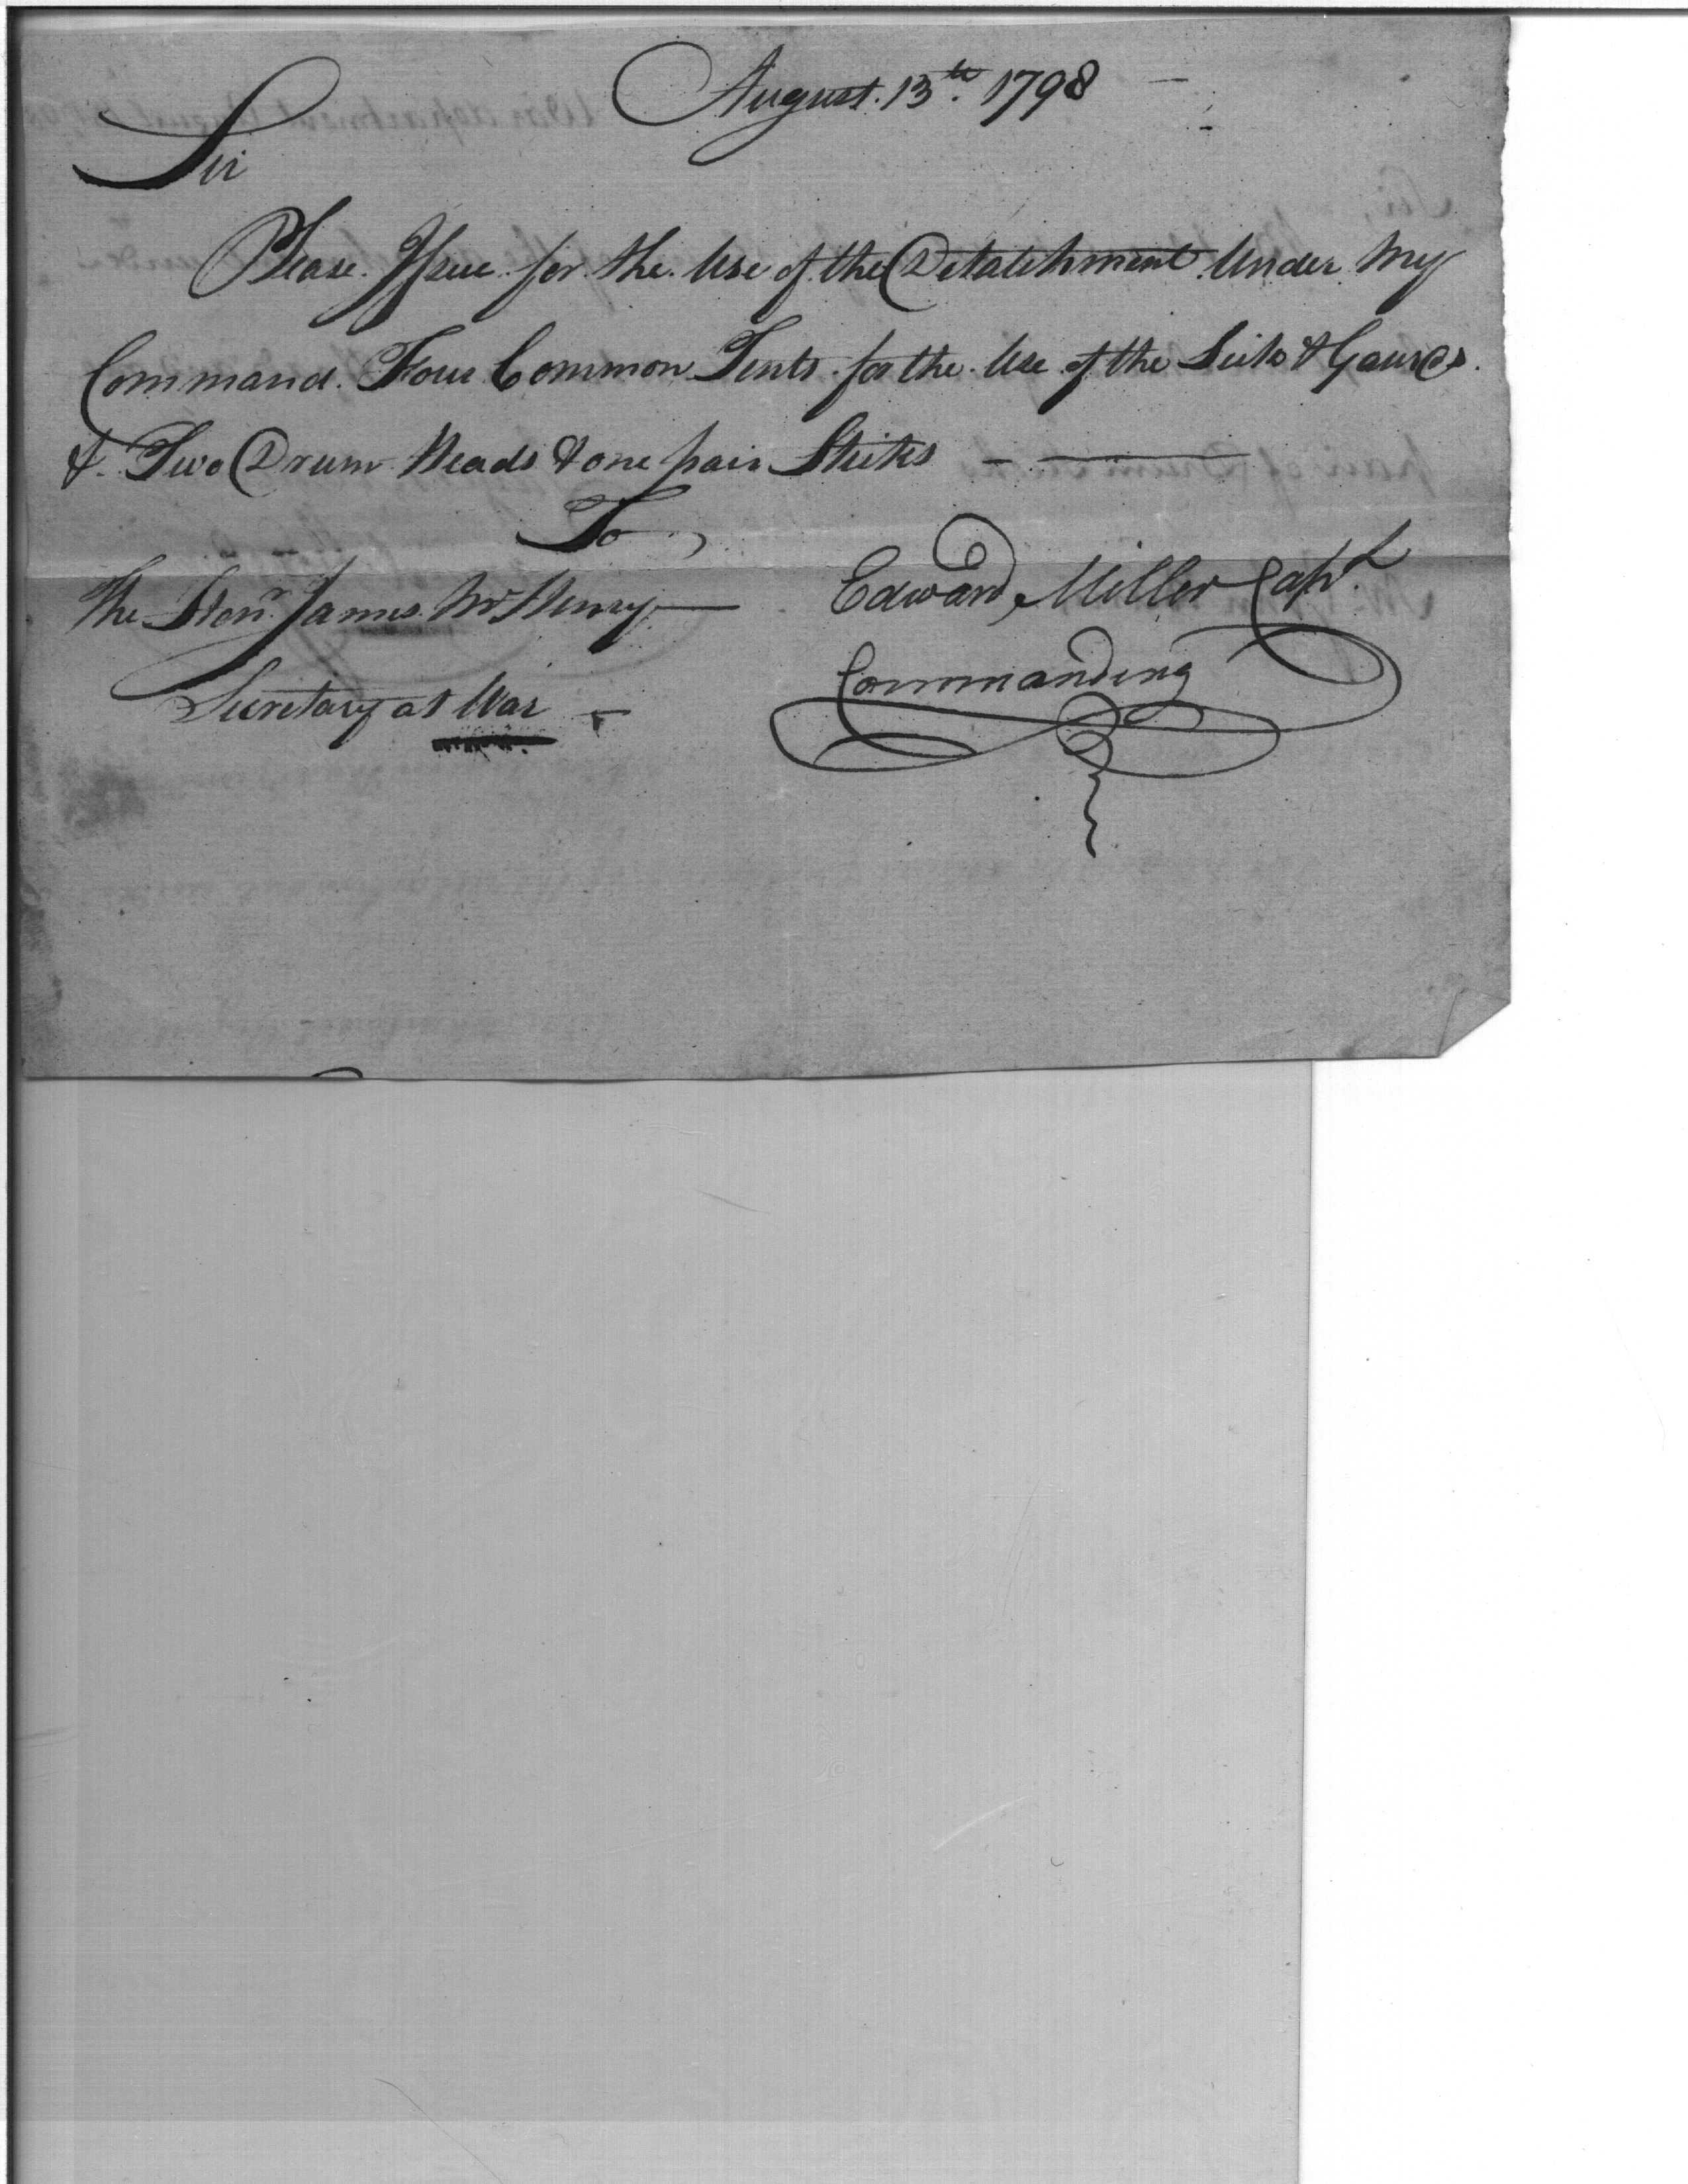 August. 13th. 1798
Sir
Please. Issue. for. the. Use of. the Detatchment. Under. My
Command. Four Common Tents. for the. Use. of the Sick & Gaurds.
&. Two Drum Heads & one pair Sticks
To
The Honr. James. McHenry
Edward Miller Capt
Secretary at War
Commanding